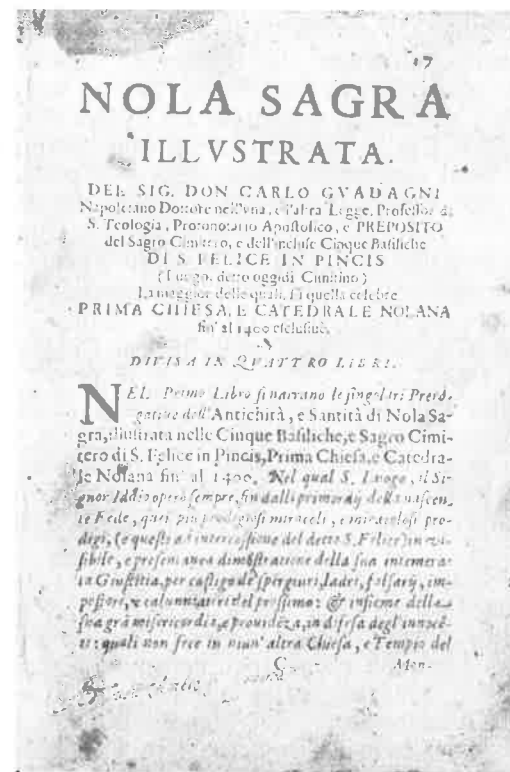 17
NOLA SAGRA
ILLVSTRATA.
DEL SIG. DON CARLO GVADAGNI
Napoletano Dottore nell'vna, e l'altra Legge, Professor di
S. Teologia, Protonotario Apostolico, e PREPOSITO
del Sagro Cimitero, e dell'incluse Cinque Basiliche
DI S. FELICE IN PINCIS
(Luogo, detto oggidì Cimitino)
La maggior delle quali, fù quella celebre
PRIMA CHIESA, E CATEDRALE NOLANA
fin' al 1400 esclusiuè.
DIVISA IN QVATTRO LIBRI.
NEL Primo Libro si narrano le singolari Prero-
gatiue dell'Antichità, e Santità di Nola Sa-
gra, illustrata nelle Cinque Basiliche, e Sagro Cimi-
tero di S. Felice in Pincis, Prima Chiesa, e Catedra-
le Nolana fin' al 1400. Nel qual S. Luogo, il Si-
gnor Iddio operò sempre, fin dalli primordij della nascen-
te Fede, quei più prodigiosi miracoli, e miracolosi pro-
digi, (e questi ad intercessione del detto S. Felice) in vi-
sibile, e presentanea dimostratione della sua intemera-
ta Giustitia, per castigo de' spergiuri, ladri, falsarij, im-
postori, e calunniatori del prossimo: & insieme della
sua grã misericordia, e prouidẽza, in difesa degl'innocẽ-
ti: quali non fece in niun' altra Chiesa, e Tempio del
C
Mon-